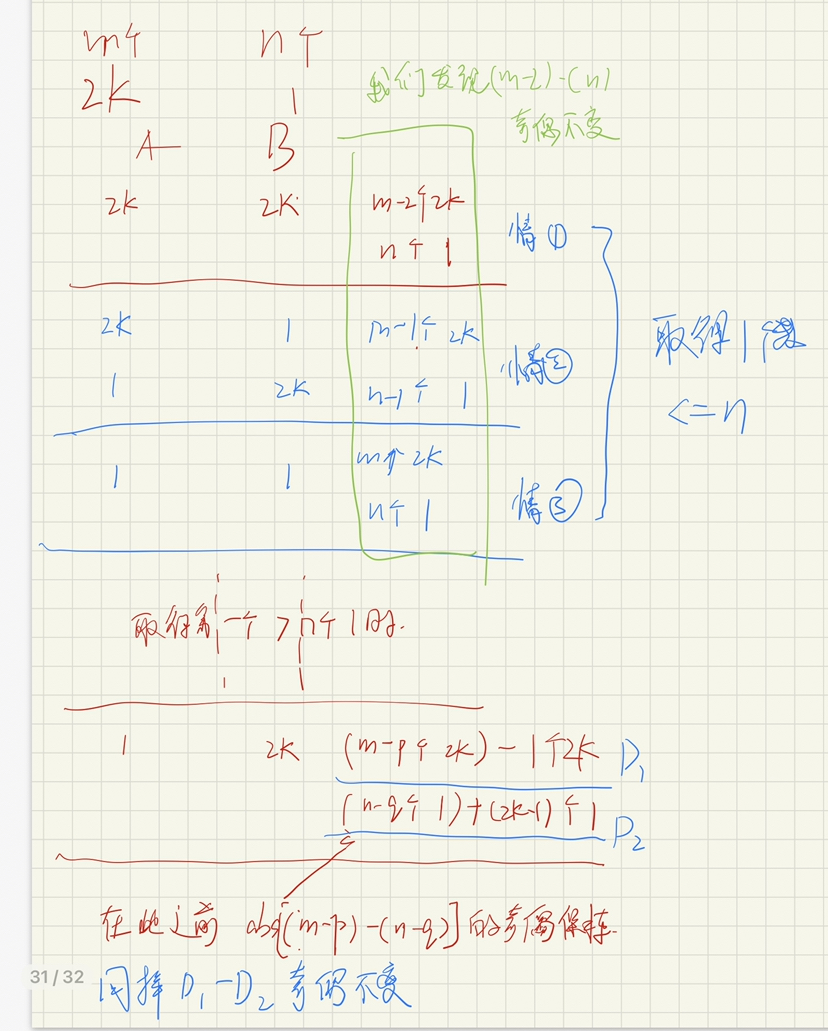 m个 n个
2K 1
我们发现(m-2)-(n)
奇偶不变
A B
2K 2K m-2个2K
n个1
情①
2K 1 m-1个2K
1 2K n-1个1
情②
取得1个数
<=n
1 1 m个2K
n个1
情③
取得第一个>n个1时.
1 2K (m-p个2K)-1个2K D1
(n-q个1)+(2K-1)个1 D2
在此之前 abs[(m-p)-(n-q)]的奇偶保持.
同样D1-D2奇偶不变
31/32